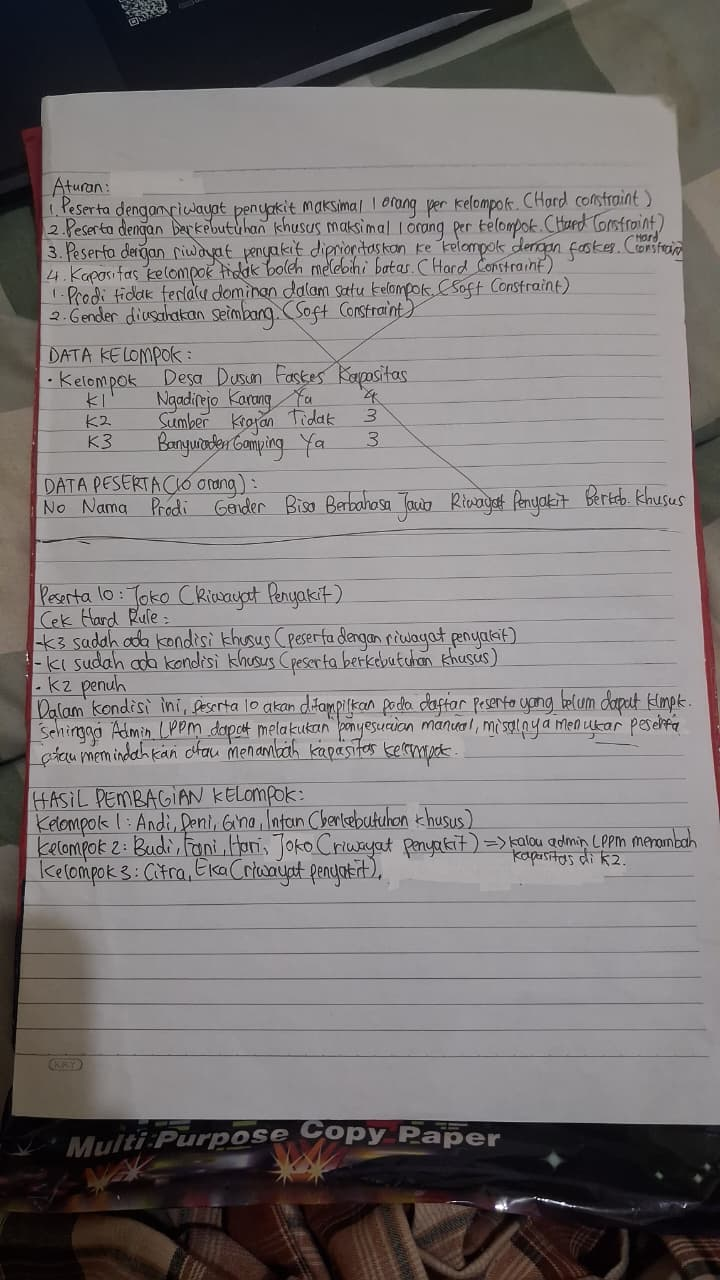 Aturan:
1. Peserta dengan riwayat penyakit maksimal 1 orang per kelompok. (Hard constraint)
2. Peserta dengan berkebutuhan khusus maksimal 1 orang per kelompok. (Hard Constraint)
3. Peserta dengan riwayat penyakit diprioritaskan ke kelompok dengan faskes. (Hard constrain
4. Kapasitas kelompok tidak boleh melebihi batas. (Hard Constraint)
1. Prodi tidak terlalu dominan dalam satu kelompok. (Soft Constraint)
2. Gender diusahakan seimbang. (Soft Constraint)
DATA KELOMPOK:
• Kelompok Desa Dusun Faskes Kapasitas
K1 Ngadirejo Karang Ya 4
K2 Sumber Krajan Tidak 3
K3 Banyuraden Gamping Ya 3
DATA PESERTA (10 orang):
No Nama Prodi Gender Bisa Berbahasa Jawa Riwayat Penyakit Berkeb. Khusus
Peserta 10: Joko (Riwayat Penyakit)
Cek Hard Rule:
-K3 sudah ada kondisi khusus (peserta dengan riwayat penyakit)
-K1 sudah ada kondisi khusus (peserta berkebutuhan khusus)
- K2 penuh
Dalam kondisi ini, peserta 10 akan ditampilkan pada daftar peserta yang belum dapat klmpk.
Sehingga Admin LPPM dapat melakukan penyesuaian manual, misalnya menukar peserta
atau memindahkan atau menambah kapasitas kelompok.
HASIL PEMBAGIAN KELOMPOK:
Kelompok 1: Andi, Deni, Gina, Intan (berkebutuhan khusus)
Kelompok 2: Budi, Fani, Hani, Joko (riwayat penyakit) => kalau admin LPPM menambah
kapasitas di K2.
Kelompok 3: Citra, Eka (riwayat penyakit),
KKY
Multi Purpose Copy Paper